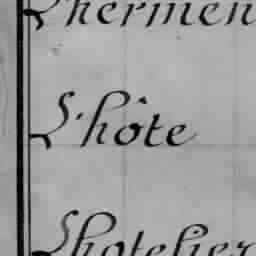 L'hermen
L'hôte
Lhotelier